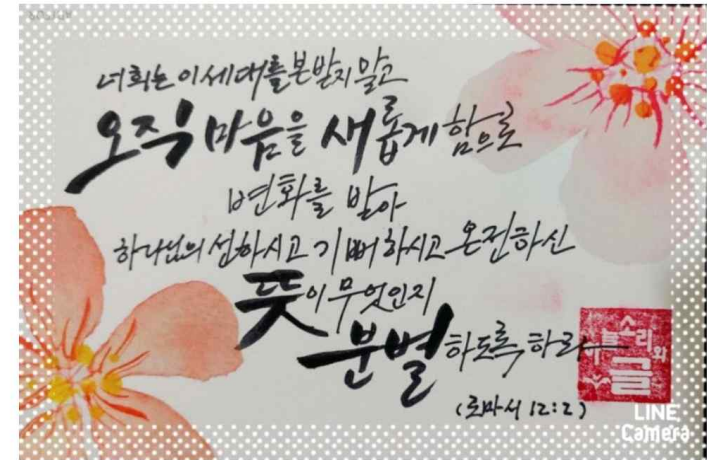 너희는 이 세대를 본받지 말고
오직 마음을 새롭게 함으로
변화를 받아
하나님의 선하시고 기뻐하시고 온전하신
뜻이 무엇인지
분별하도록 하라
(로마서 12:2)
소리와
글
LINE
Camera